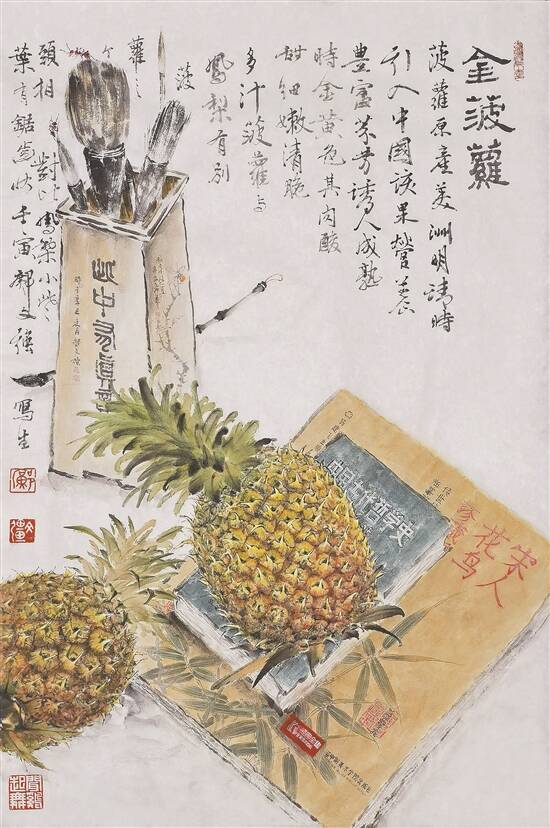 金菠蘿
菠蘿原產美洲明清時
引入中國該果營養
豐富芬芳誘人成熟
時金黃色其肉酸
甜細嫩清脆
多汁菠蘿与
鳳梨有別
菠
蘿
頭相對比鳳梨小些
葉有鋸齒狀壬寅郭文強
寫生
此中有真意
中国古代哲学史
宋人
花鸟
聞鷄起舞